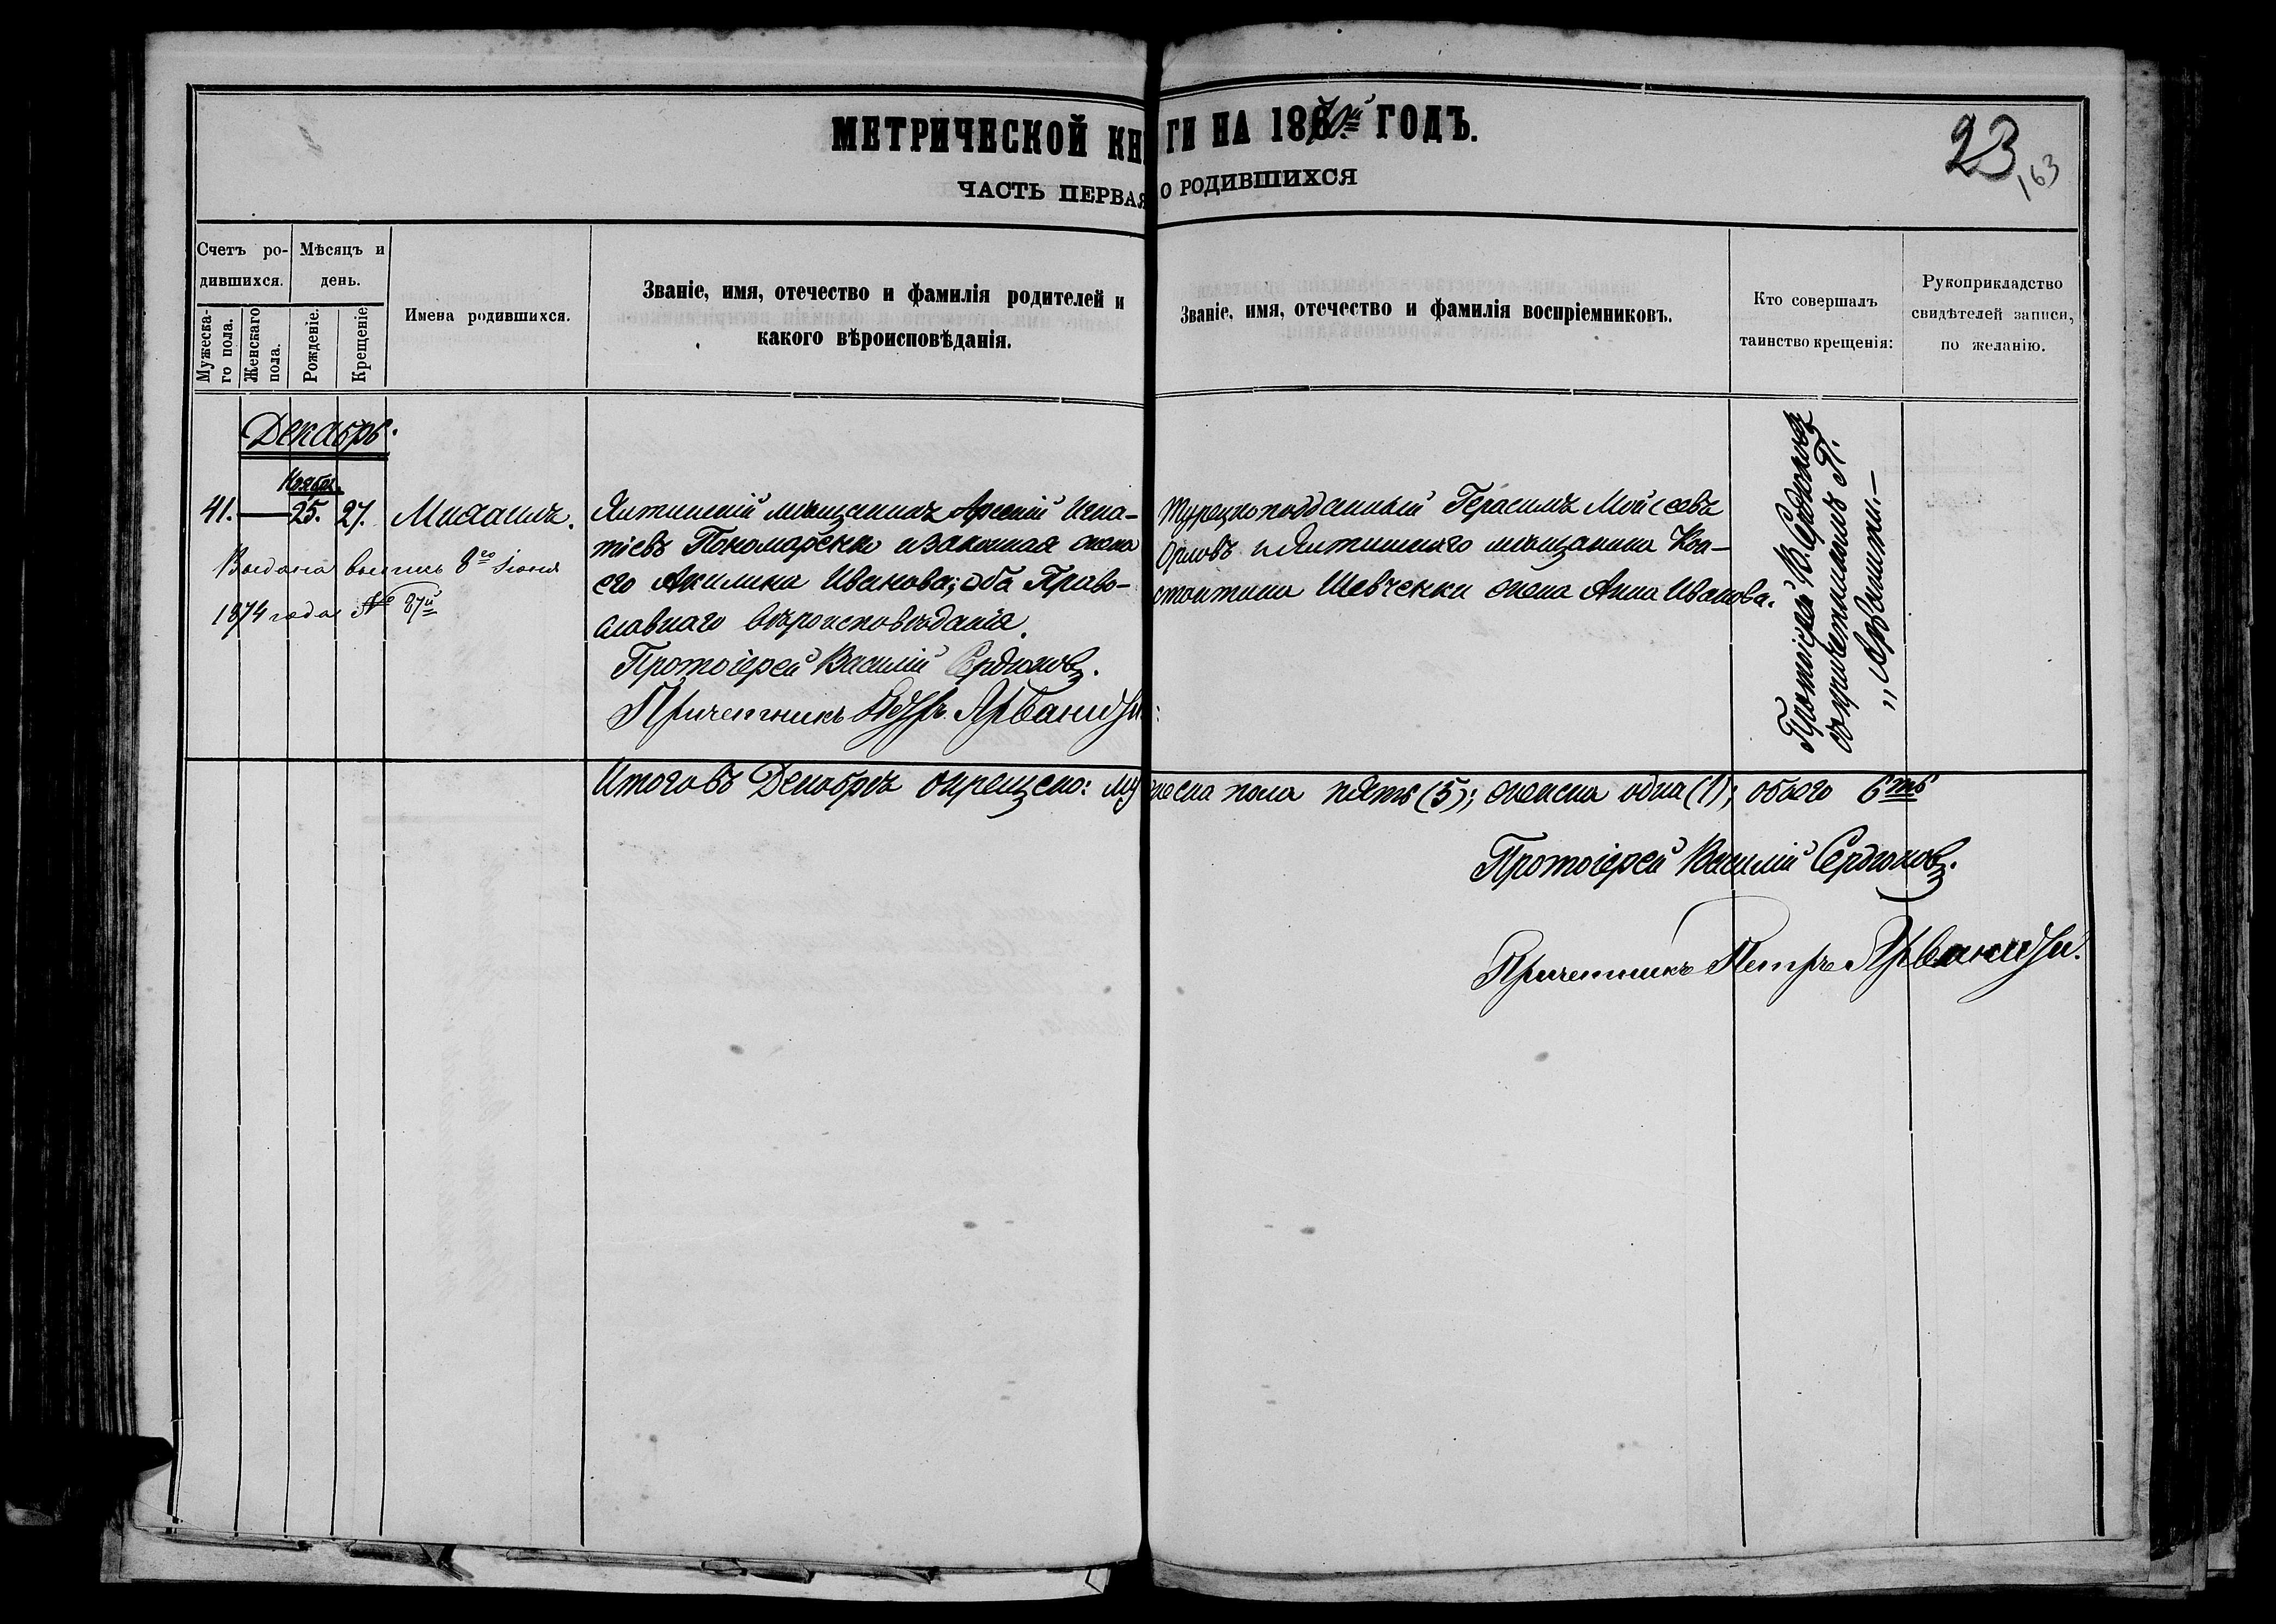 МЕТРИЧЕСКОЙ КНИГИ НА 1870й ГОДЪ.
23
163
ЧАСТЬ ПЕРВАЯ О РОДИВШИХСЯ
Счетъ ро-
дившихся.
Мужеска-
го пола.
Женскаго
пола.
Мѣсяцъ и
день.
Рожденіе.
Крещеніе.
Имена родившихся.
Званіе, имя, отечество и фамилія родителей и
какого вѣроисповѣданія.
Званіе, имя, отечество и фамилія воспріемниковъ.
Кто совершалъ
таинство крещенія:
Рукоприкладство
свидѣтелей записи,
по желанію.
Декабрь.
Ноябр.
41. — 25. 27.
Выдана выпись 8го Іюня
1874 года № 87й
Ялтинскій мѣщанинъ Арсеній Игна-
тіевъ Пономаренко и законная жена
его Акилина Иванова; оба Право-
славнаго вѣроисповѣданія.
Протоіерей Василій Сердюковъ.
Причетникъ Петръ Арваниди:
Турецкоподданный Герасимъ Мойсеевъ
Орловъ и Ялтинскаго мѣщанина Кон-
стантина Шевченки жена Анна Иванова.
Протоіерей В. Сердюковъ
съ причетникомъ П.
„Арваниди.—
Итого въ Декабрѣ окрещено: мужеска пола пять (5); женска одна (1); обоего 6ть
Протоіерей Василій Сердюковъ.
Причетникъ Петръ Арваниди.